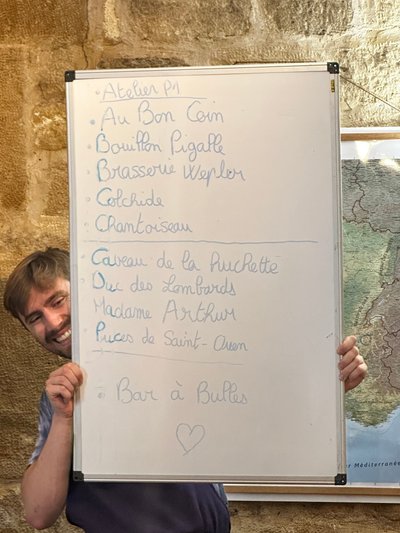 Atelier P1
Au Bon Coin
Bouillon Pigalle
Brasserie Wepler
Colchide
Chantoiseau
Caveau de la huchette
Duc des Lombards
Madame Arthur
Puces de Saint-Ouen
Bar à Bulles
er Méditerranée